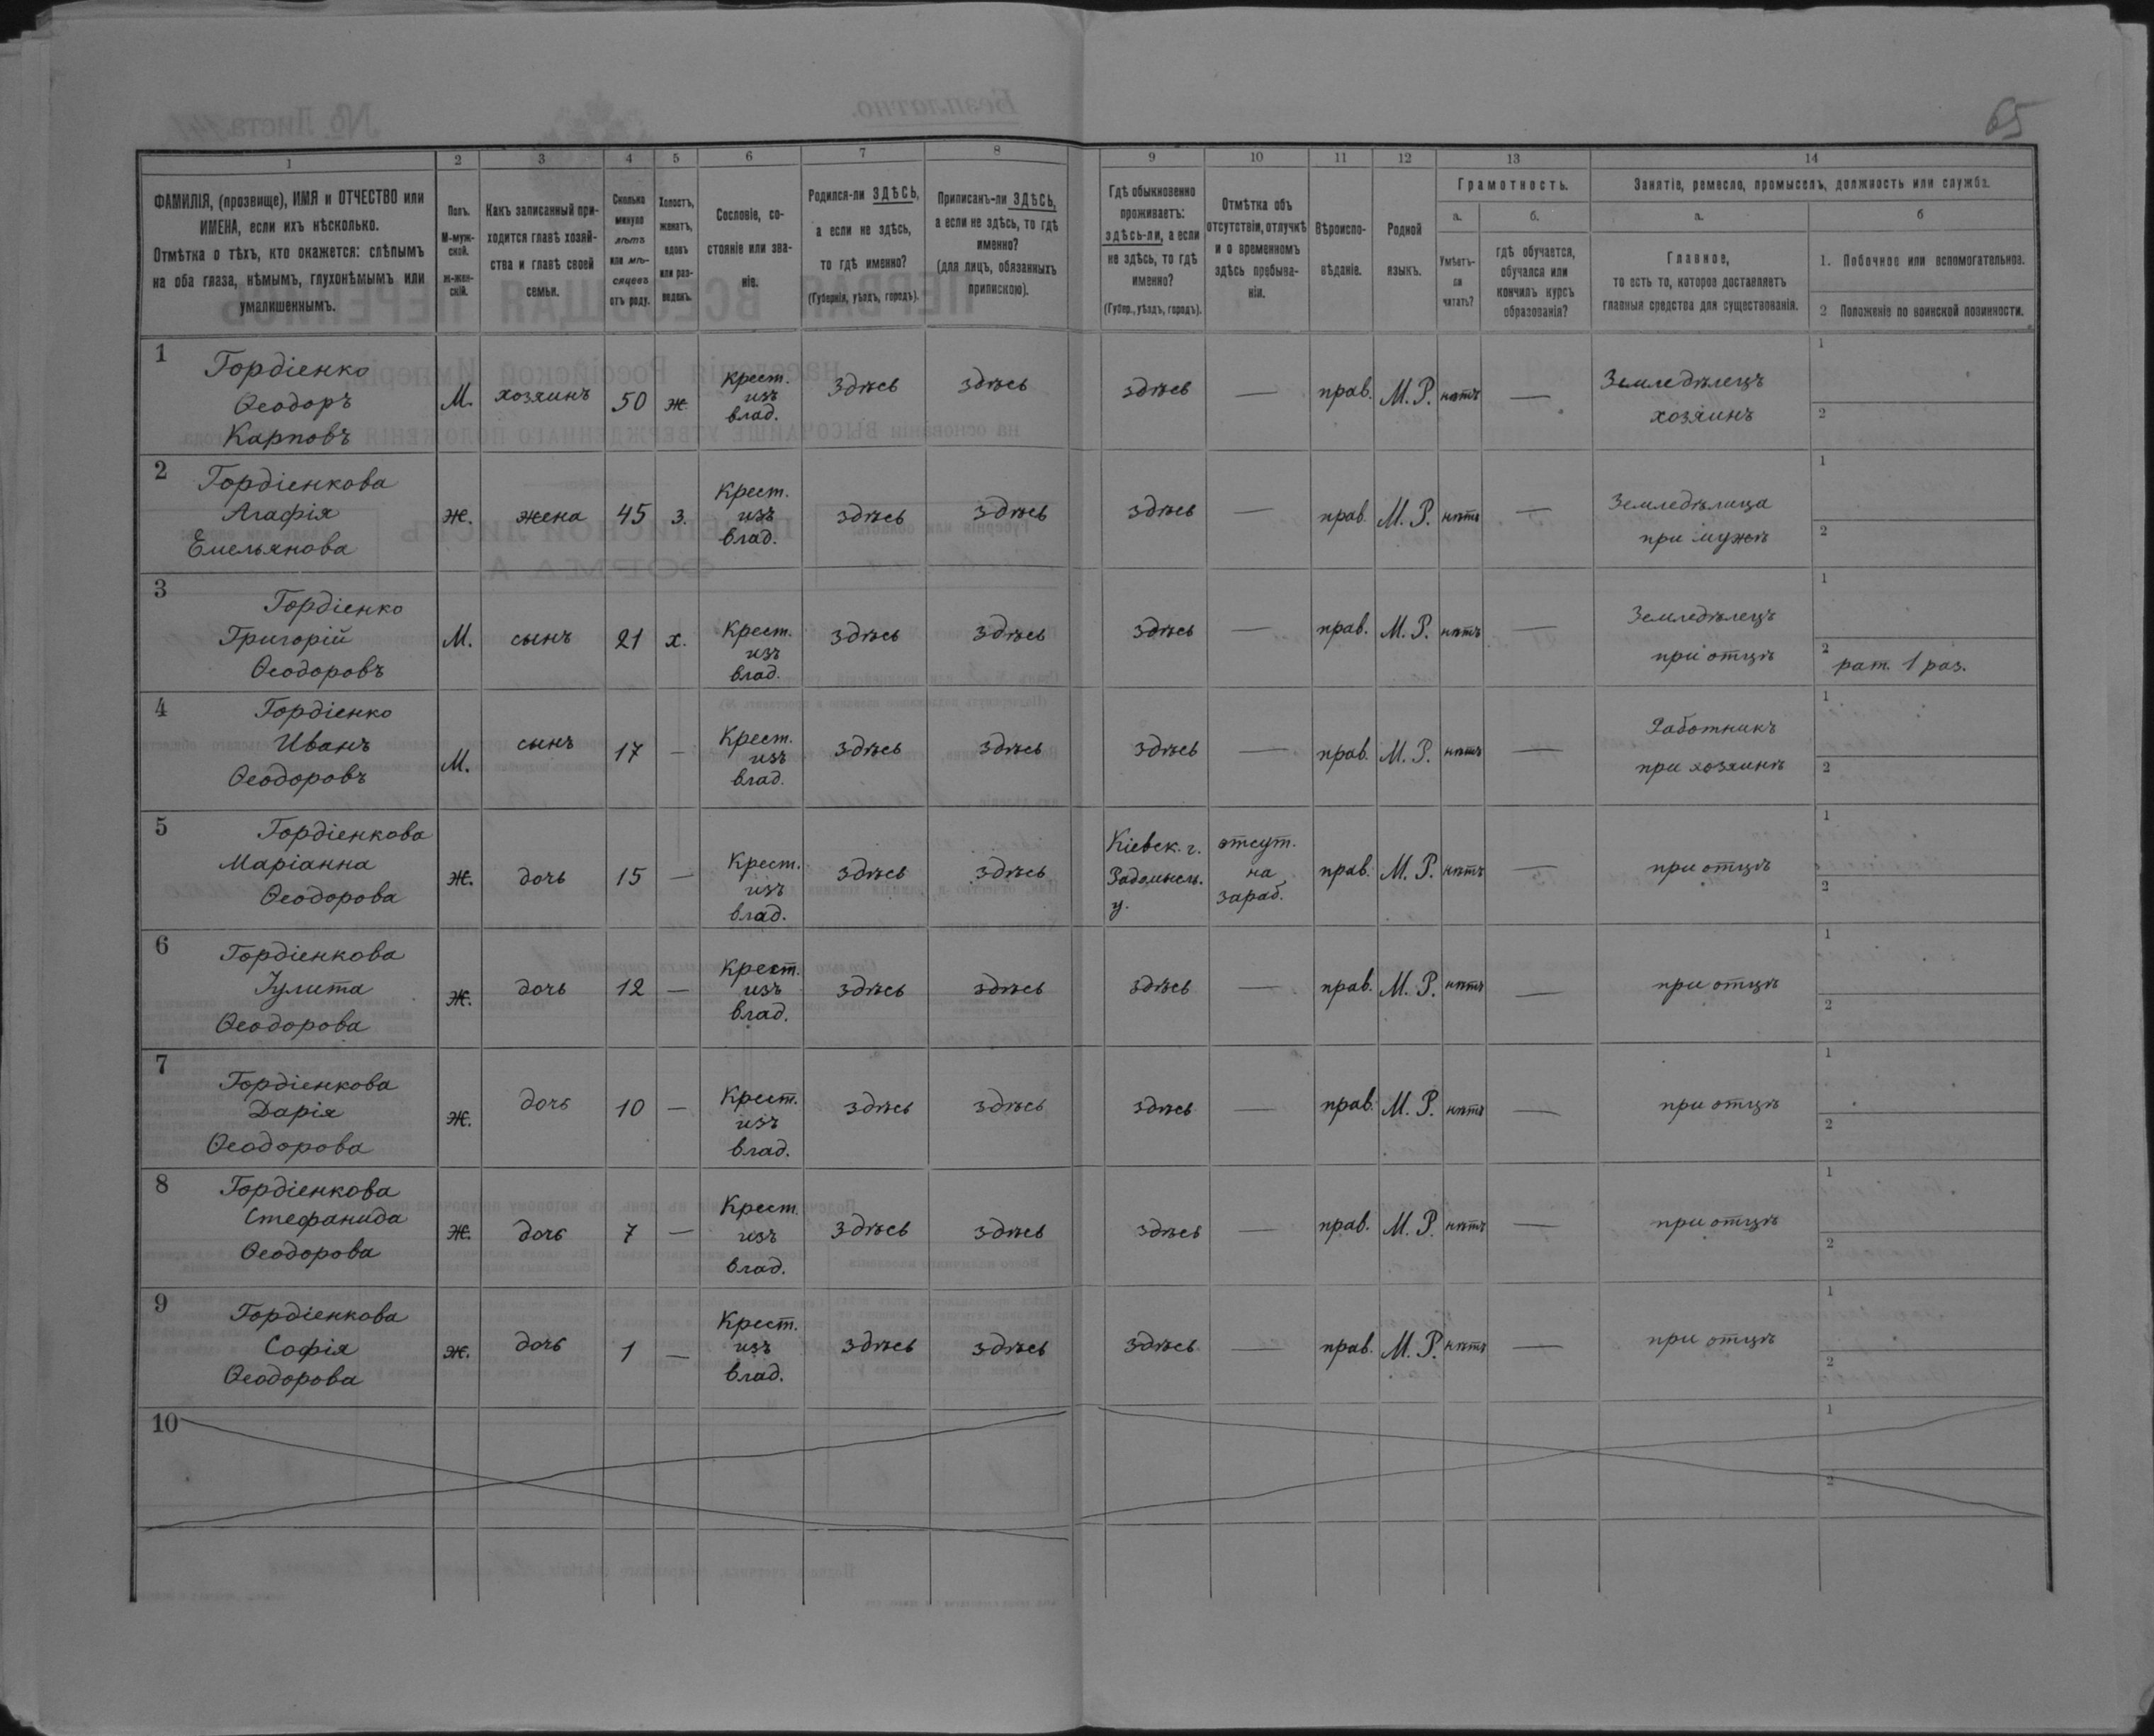 65
1 2 3 4 5 6 7 8 9 10 11 12 13 14
ФАМИЛІЯ, (прозвище), ИМЯ и ОТЧЕСТВО или
ИМЕНА, если ихъ нѣсколько.
Отмѣтка о тѣхъ, кто окажется: слѣпымъ
на оба глаза, нѣмымъ, глухонѣмымъ или
умалишеннымъ.
Полъ.
М-муж-
ской.
ж-жен-
скій.
Какъ записанный при-
ходится главѣ хозяй-
ства и главѣ своей
семьи.
Сколько
минуло
лѣтъ
или мѣ-
сяцевъ
отъ роду.
Холостъ,
женатъ,
вдовъ
или раз-
веденъ.
Сословіе, со-
стояніе или зва-
ніе.
Родился-ли ЗДѢСЬ,
а если не здѣсь,
то гдѣ именно?
(Губернія, уѣздъ, городъ).
Приписанъ-ли ЗДѢСЬ,
а если не здѣсь, то гдѣ
именно?
(для лицъ, обязанныхъ
припискою).
Гдѣ обыкновенно
проживаетъ:
здѣсь-ли, а если
не здѣсь, то гдѣ
именно?
(Губер., уѣздъ, городъ).
Отмѣтка объ
отсутствіи, отлучкѣ
и о временномъ
здѣсь пребыва-
ніи.
Вѣроиспо-
вѣданіе.
Родной
языкъ.
Грамотность.
а.
Умѣетъ-
ли
читать?
б.
гдѣ обучается,
обучался или
кончилъ курсъ
образованія?
Занятіе, ремесло, промыселъ, должность или служба.
а.
Главное,
то есть то, которое доставляетъ
главныя средства для существованія.
б
1. Побочное или вспомогательное.
2 Положеніе по воинской повинности.
1 Гордіенко
Ѳеодоръ
Карповъ
М. хозяинъ 50 ж.
крест.
изъ
влад.
Здѣсь здѣсь здѣсь — прав. М. Р. нѣтъ —
Земледѣлецъ
хозяинъ
1
2
2 Гордіенкова
Агафія
Емельянова
ж. жена 45 з.
Крест.
изъ
влад.
здѣсь здѣсь здѣсь — прав. М. Р. нѣтъ —
Земледѣлица
при мужѣ
1
2
3 Гордіенко
Григорій
Ѳеодоровъ
М. сынъ 21 х.
Крест.
изъ
влад.
здѣсь здѣсь здѣсь — прав. М. Р. нѣтъ —
Земледѣлецъ
при отцѣ
1
2 рат. 1 раз.
4 Гордіенко
Иванъ
Ѳеодоровъ
М. сынъ 17 —
Крест.
изъ
влад.
здѣсь здѣсь здѣсь — прав. М. Р. нѣтъ —
Работникъ
при хозяинѣ
1
2
5 Гордіенкова
Маріанна
Ѳеодорова
ж. дочь 15 —
Крест.
изъ
влад.
здѣсь здѣсь
Кіевск. г.
Радомысль.
у.
отсут.
на
зараб.
прав. М. Р. нѣтъ —
при отцѣ
1
2
6 Гордіенкова
Іулита
Ѳеодорова
ж. дочь 12 —
Крест.
изъ
влад.
здѣсь здѣсь здѣсь — прав. М. Р. нѣтъ —
при отцѣ
1
2
7 Гордіенкова
Дарія
Ѳеодорова
ж. дочь 10 —
Крест.
изъ
влад.
здѣсь здѣсь здѣсь — прав. М. Р. нѣтъ —
при отцѣ
1
2
8 Гордіенкова
Стефанида
Ѳеодорова
ж. дочь 7 —
Крест.
изъ
влад.
здѣсь здѣсь здѣсь — прав. М. Р. нѣтъ —
при отцѣ
1
2
9 Гордіенкова
Софія
Ѳеодорова
ж. дочь 1 —
Крест.
изъ
влад.
здѣсь здѣсь здѣсь — прав. М. Р. нѣтъ —
при отцѣ
1
2
10
1
2